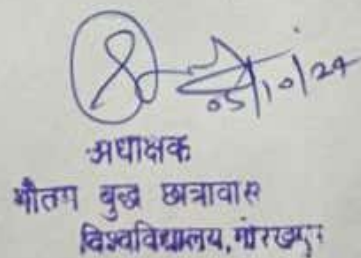 05/10/24
अधीक्षक
गौतम बुद्ध छात्रावास
विश्वविद्यालय, गोरखपुर